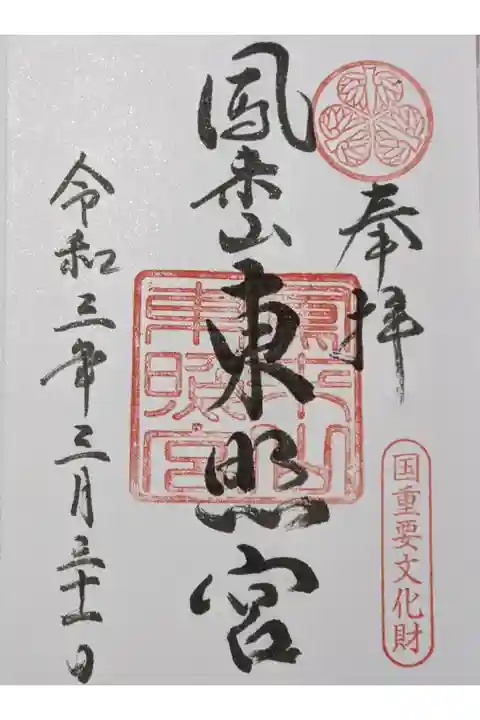 奉拝
国重要文化財
鳳来山東照宮
鳳来山
東照宮
令和三年三月三十一日